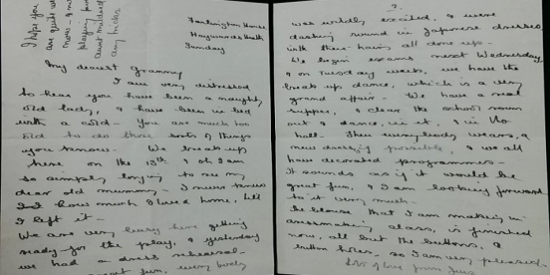 I hope you
are quite well
now - & not
playing
Aunt Mildred
any tricks
Farlington House
Haywards Heath
Sunday
My dearest granny
I am very distressed
to hear you have been a naughty
old lady, & have been in bed
with a cold - You are much too
old to do those sorts of things
you know. We break up
here on the 18th, & oh I am
so simply longing to see my
dear old mummy. I never knew
just how much I loved home, till
I left it -
We are very busy here getting
ready for the play, & yesterday
we had a dress rehearsal.
great fun, every body
2.
was wildly excited, & were
dashing round in Japanese dresses
with their hair all done up.
We begin exams next Wednesday,
& on Tuesday week, we have the
break up dance, which is a very
grand affair. We have a
supper, & clear the school room
out & dance in it, & in the
hall. Then everybody wears a
new dress if possible, & we all
have decorated programmes -
It sounds as if it would be
great fun, & I am looking forward
to it very much.
The blouse that I am making in
dressmaking class, is finished
now, all but the buttons, &
button holes, so I am very pleased.
love from